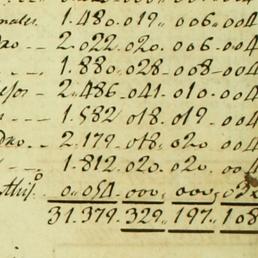 1.480.. 019.. 006.. 004
2.022.. 020.. 006.. 004
1.880.. 028.. 008.. 004
2.486.. 041.. 010.. 004
1.582 018. 019.. 004
2.179.. 018.. 020 004
1.812. 020.. 020.. 004
0.054.. 000.. 000..
31.379. 329.. 197.. 108